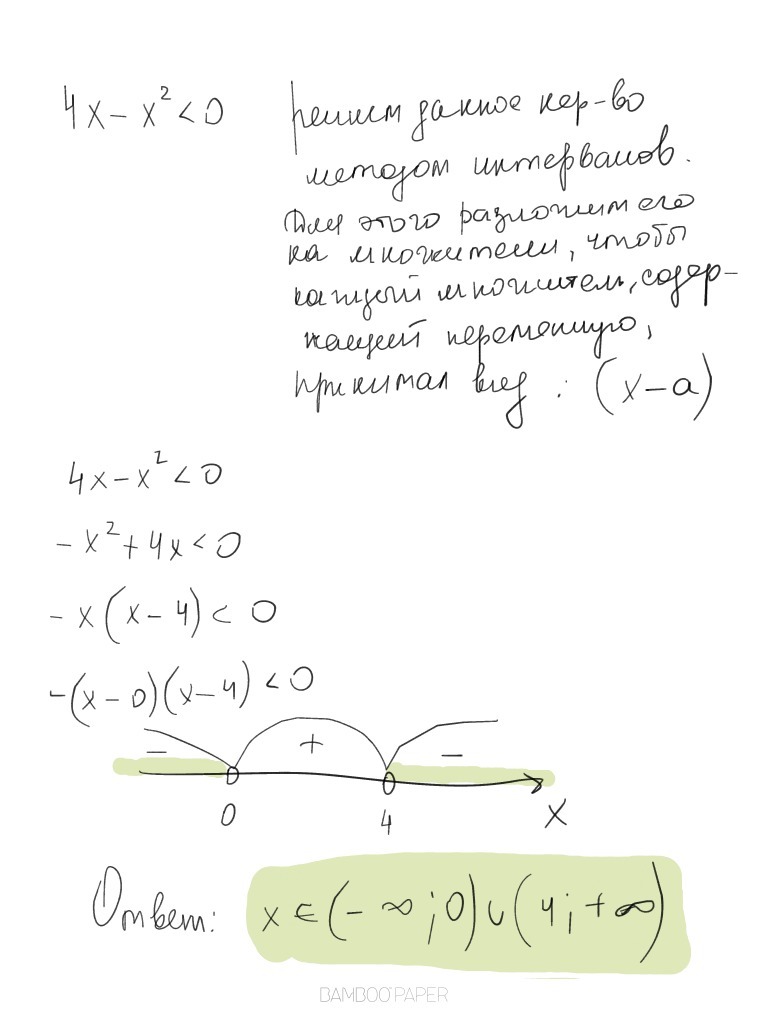 4x - x² < 0
решим данное нер-во
методом интервалов.
Для этого разложим его
на множители, чтобы
каждый множитель, содер-
жащий переменную,
принимал вид : (x-a)
4x - x² < 0
- x² + 4x < 0
- x(x - 4) < 0
-(x - 0)(x - 4) < 0
- + -
0 4 x
Ответ: x ∈ (- ∞; 0) ∪ (4; + ∞)
BAMBOO PAPER